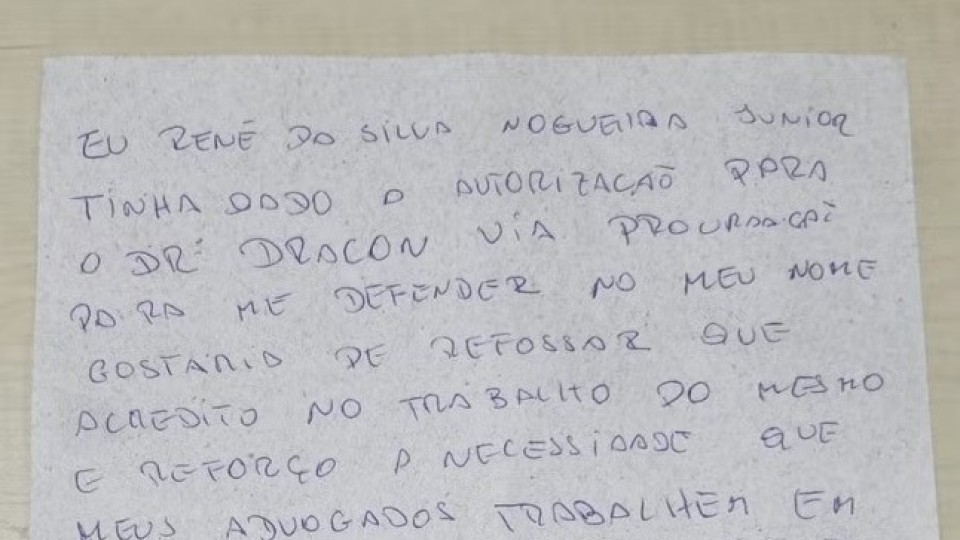 EU RENÊ DA SILVA NOGUEIRA JUNIOR
TINHA DADO A AUTORIZAÇÃO PARA
O DR. DRACON VIA PROCURAÇÃO
PARA ME DEFENDER NO MEU NOME
GOSTARIA DE REFOSSAR QUE
ACREDITO NO TRABALHO DO MESMO
E REFORÇO A NECESSIDADE QUE
MEUS ADVOGADOS TRABALHEM EM